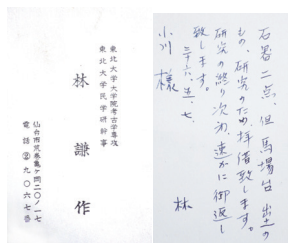 東北大学大学院考古学専攻
東北大学民学研幹事
林謙作
仙台市荒巻亀ケ岡二〇ノ一七
電話②九〇六七番
石器二点、但馬場台出土の
もの、研究のため拝借致します。
研究の終り次第、速かに御返し
致します。
三十六、五、七、
林
小川様